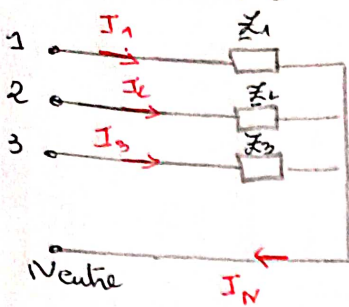 I1 Z1
1
I2 Z2
2
I3 Z3
3
Neutre
IN